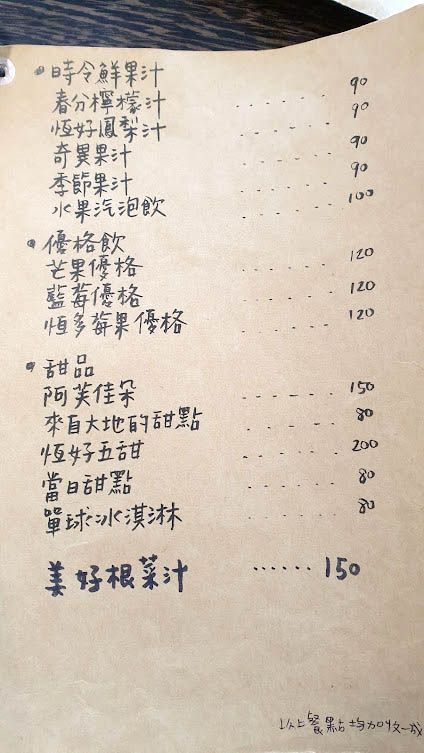 • 時令鮮果汁
春分檸檬汁 ........ 90
恆好鳳梨汁 ........ 90
奇異果汁 ........ 90
季節果汁 ........ 90
水果汽泡飲 ........ 100
• 優格飲
芒果優格 ........ 120
藍莓優格 ........ 120
恆多莓果優格 ........ 120
• 甜品
阿芙佳朵 ........ 150
來自大地的甜點 ........ 80
恆好五甜 ........ 200
當日甜點 ........ 80
單球冰淇淋 ........ 80
美好根菜汁 ...... 150
以上餐點均加收一成